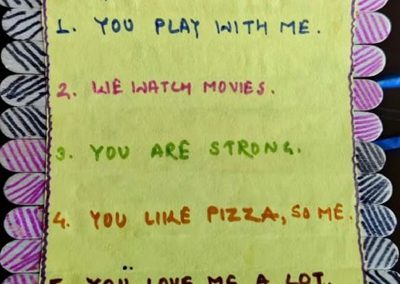 1. YOU PLAY WITH ME.
2. WE WATCH MOVIES.
3. YOU ARE STRONG.
4. YOU LIKE PIZZA, SO ME.
5. YOU LOVE ME A LOT.